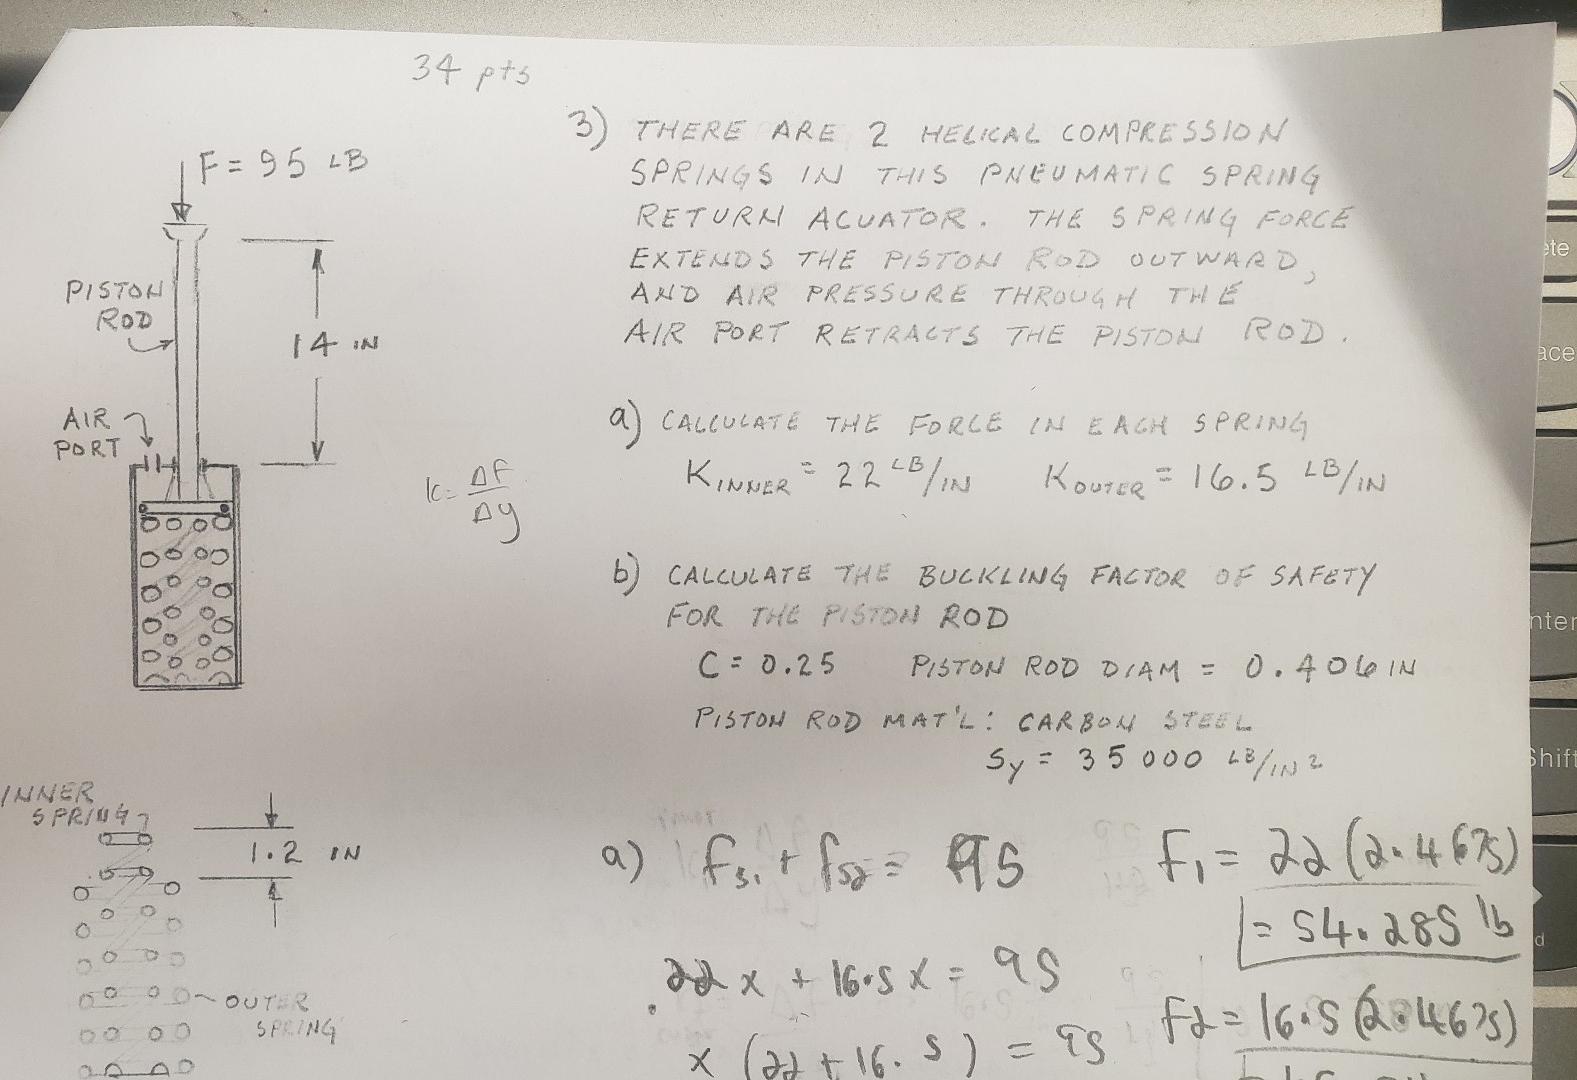 34 pts
F = 95 LB
PISTON
ROD
14 IN
AIR
PORT
K = ΔF
Δy
3) THERE ARE 2 HELICAL COMPRESSION
SPRINGS IN THIS PNEUMATIC SPRING
RETURN ACUATOR. THE SPRING FORCE
EXTENDS THE PISTON ROD OUTWARD,
AND AIR PRESSURE THROUGH THE
AIR PORT RETRACTS THE PISTON ROD.
a) CALCULATE THE FORCE IN EACH SPRING
K INNER = 22 LB/IN K OUTER = 16.5 LB/IN
b) CALCULATE THE BUCKLING FACTOR OF SAFETY
FOR THE PISTON ROD
C = 0.25 PISTON ROD DIAM = 0.406 IN
PISTON ROD MAT'L: CARBON STEEL
Sy = 35000 LB/IN2
INNER
SPRING
1.2 IN
OUTER
SPRING
a) Fs1 + Fs2 = 95
22x + 16.5x = 95
x (22 + 16.5) = 95
F1 = 22 (2.4675)
= 54.285 lb
F2 = 16.5 (2.4675)
ete
ace
nter
Shift
d